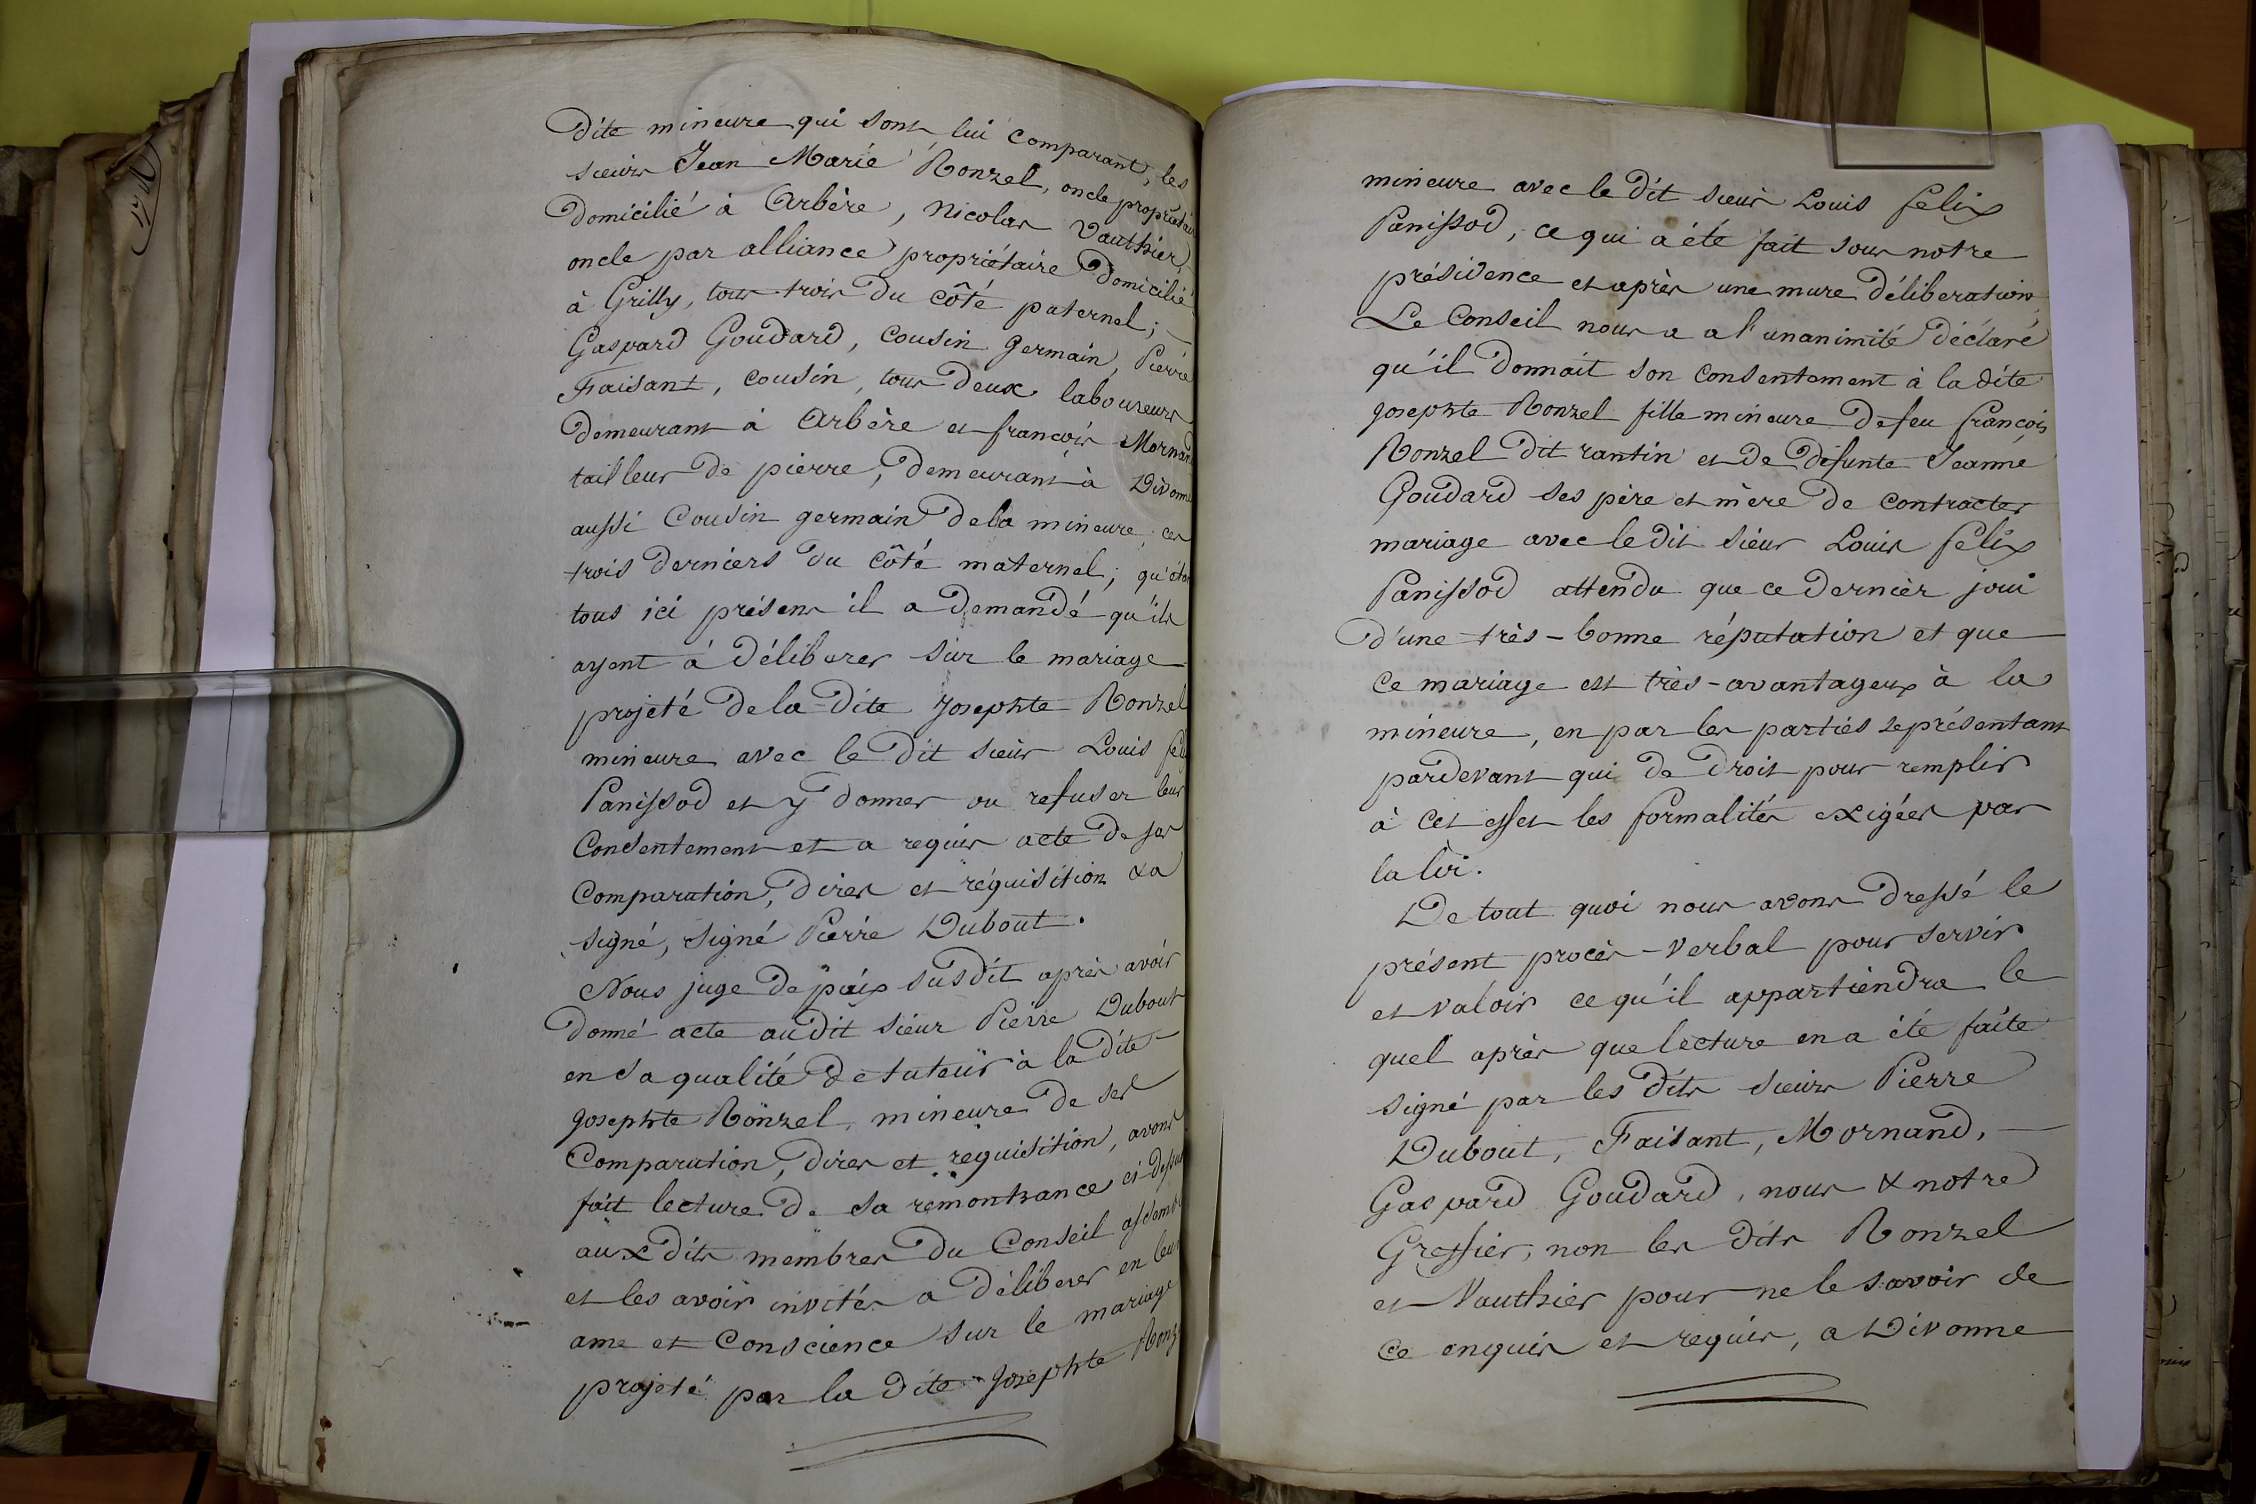 Dite mineure qui sont lui comparant, les
sieurs Jean Marie Ronzel, oncle propriétai
Domicilié à Arbère, Nicolas Vauthier,
oncle par alliance propriétaire Domicilié
à Grilly, tous trois Du côté paternel; —
Gaspard Goudard, cousin germain, Pierre
Faisant, cousin, tous Deux laboureurs
Demeurant à Arbère et françois Mornand
tailleur De pierre, Demeurant à Divonne
aussi Cousin germain De la mineure, ces
trois Derniers Du côté maternel; qu'étan
tous ici présens il a Demandé qu'ils
ayent à Délibérer sur le mariage
projeté De la Dite Josephte Ronzel
mineure avec le Dit sieur Louis fel
Panissod et y donner ou refuser leur
Consentement et a requis acte De sa
Comparution, Dires et réquisition & a
signé, signé Pierre Dubout.
Nous juge De paix susdit après avoir
Donné acte au Dit sieur Pierre Dubout
en sa qualité De tuteur à la Dite
Josephte Ronzel mineure De ses
Comparution, Dires et réquisition, avons
fait lecture De sa remontrance ci-Dessus
aux Dits membres Du Conseil assemb
et les avoir invités a Déliberer en leur
ame et Conscience sur le mariage
projeté par la Dite Josephte Ronz
mineure avec le Dit sieur Louis felix
Panissod, ce qui a été fait sous notre
présidence et après une mure Déliberation
Le Conseil nous a a l'unanimité Déclaré
qu'il Donnait son consentement à la Dite
Josephte Ronzel fille mineure De feu françois
Ronzel Dit rantin et De Défunte Jeanne
Goudard ses père et mère De contracter
mariage avec le Dit sieur Louis felix
Panissod attendu que ce Dernier joui
D'une très-bonne réputation et que
ce mariage est très-avantageux à la
mineure, en par les parties se présentant
pardevant qui De Droit pour remplir
à cet effet les formalités exigées par
la loi.
De tout quoi nous avons Dressé le
présent procès-verbal pour servir
et valoir ce qu'il appartiendra le
quel après que lecture en a été faite
signé par les Dits sieurs Pierre
Dubout, Faisant, Mornand, —
Gaspard Goudard, nous & notre
Greffier, non les Dits Ronzel
et Vauthier pour ne le savoir de
ce enquis et requis, a Divonne